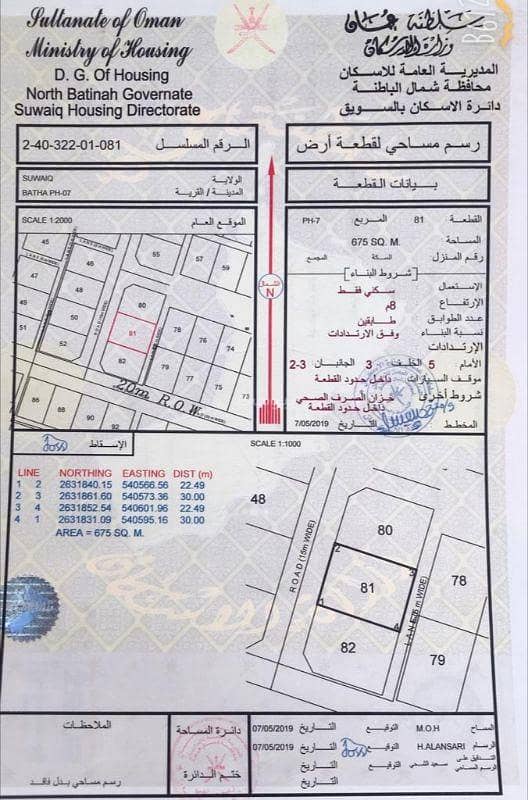 Sultanate of Oman
Ministry of Housing
D. G. Of Housing
North Batinah Governate
Suwaiq Housing Directorate
سلطنة عمان
وزارة الإسكان
المديرية العامة للاسكان
محافظة شمال الباطنة
دائرة الاسكان بالسويق
2-40-322-01-081 الرقم المسلسل
رسم مساحي لقطعة أرض
SUWAIQ الولاية
BATHA PH-07 المدينة / القرية
بيانات القطعة
SCALE 1:2000 الموقع العام
45
46
47
48
49
50
52
55
57
59
80
81
82
78
76
74
79
77
75
73
86
88
90
92
20m R.O.W
الشمال
N
القطعة 81 المربع PH-7
المساحة 675 SQ. M.
رقم المنزل السكة المجمع
شروط البناء
الإستعمال سكني فقط
الإرتفاع 8م
عدد الطوابق طابقين
نسبة البناء وفق الارتدادات
الإرتدادات
الأمام 5 الخلف 3 الجانبان 2-3
موقف السيارات داخل حدود القطعة
شروط أخرى خزان الصرف الصحي
داخل حدود القطعة
المخطط التاريخ 7/05/2019
الإسقاط
SCALE 1:1000
LINE NORTHING EASTING DIST (m)
1 2 2631840.15 540566.56 22.49
2 3 2631861.60 540573.36 30.00
3 4 2631852.54 540601.96 22.49
4 1 2631831.09 540595.16 30.00
AREA = 675 SQ. M.
48
ROAD (15m WIDE)
80
2
3
81
1
4
82
LANE (6 m WIDE)
78
79
الملاحظات
رسم مساحي بدل فاقد
دائرة المساحة
ختم الدائرة
المساح M.O.H التوقيع التاريخ 07/05/2019
الرسام H.ALANSARI التوقيع التاريخ 07/05/2019
التدقيق على
الرسم المساحي
سعيد
التوقيع
التاريخ